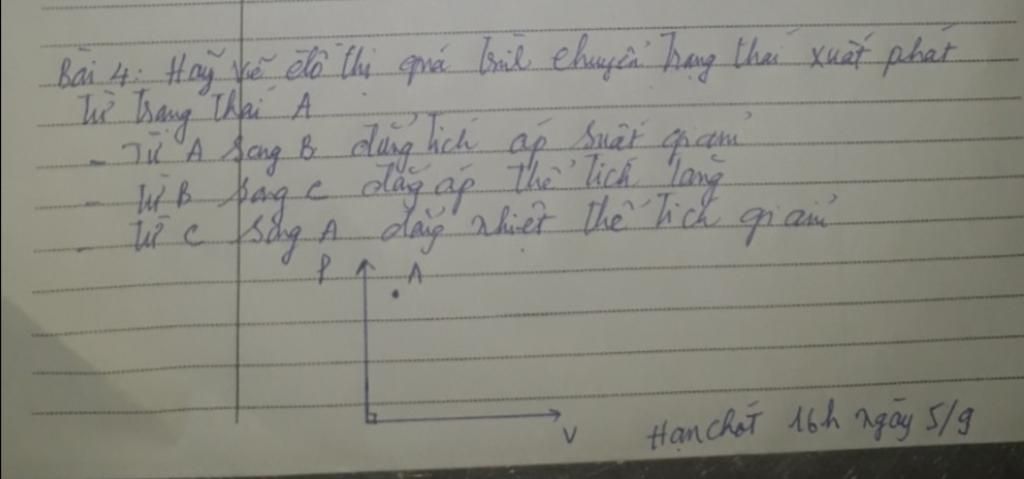 Bài 4: Hãy vẽ đồ thị quá trình chuyển trạng thái xuất phát
từ trạng thái A
- Từ A sang B đẳng tích áp suất giảm
- Từ B sang C đẳng áp thể tích tăng
- Từ C sang A đẳng nhiệt thể tích giảm
P A
V
Hạn chót 16h ngày 5/9